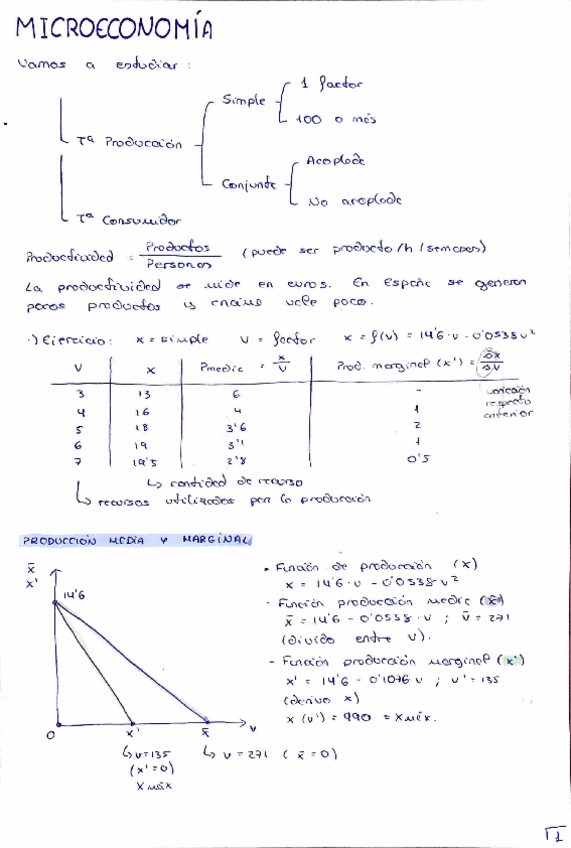 MICROECONOMÍA
Vamos a estudiar:
Tª Producción
Simple
1 factor
100 o más
Conjunta
Acoplada
No acoplada
Tª Consumidor
Productividad = Productos / Personas (puede ser producto/h /semanas)
La productividad se mide en euros. En España se generan
pocos productos y encima vale poco.
·) Ejercicio: x = simple v = factor x = f(v) = 14'6·v - 0'0538v²
v x Pmedia = x/v Prod. marginal (x') = Δx/Δv
3 13 6 - variación
respecto
anterior
4 16 4 1
5 18 3'6 2
6 19 3'1 1
7 19'5 2'8 0'5
↳ cantidad de recurso
↳ recursos utilizados por la producción
PRODUCCIÓN MEDIA Y MARGINAL
x̄
x'
14'6
0 x' x̄ v
↳ v=135 ↳ v=271 (x̄=0)
(x'=0)
x máx
• Función de producción (x)
x = 14'6·v - 0'0538v²
- Función producción media (x̄)
x̄ = 14'6 - 0'0538·v ; v̄ = 271
(divido entre v).
- Función producción marginal (x')
x' = 14'6 - 0'1076v ; v' = 135
(derivo x)
x (v') = 990 = x máx.
1